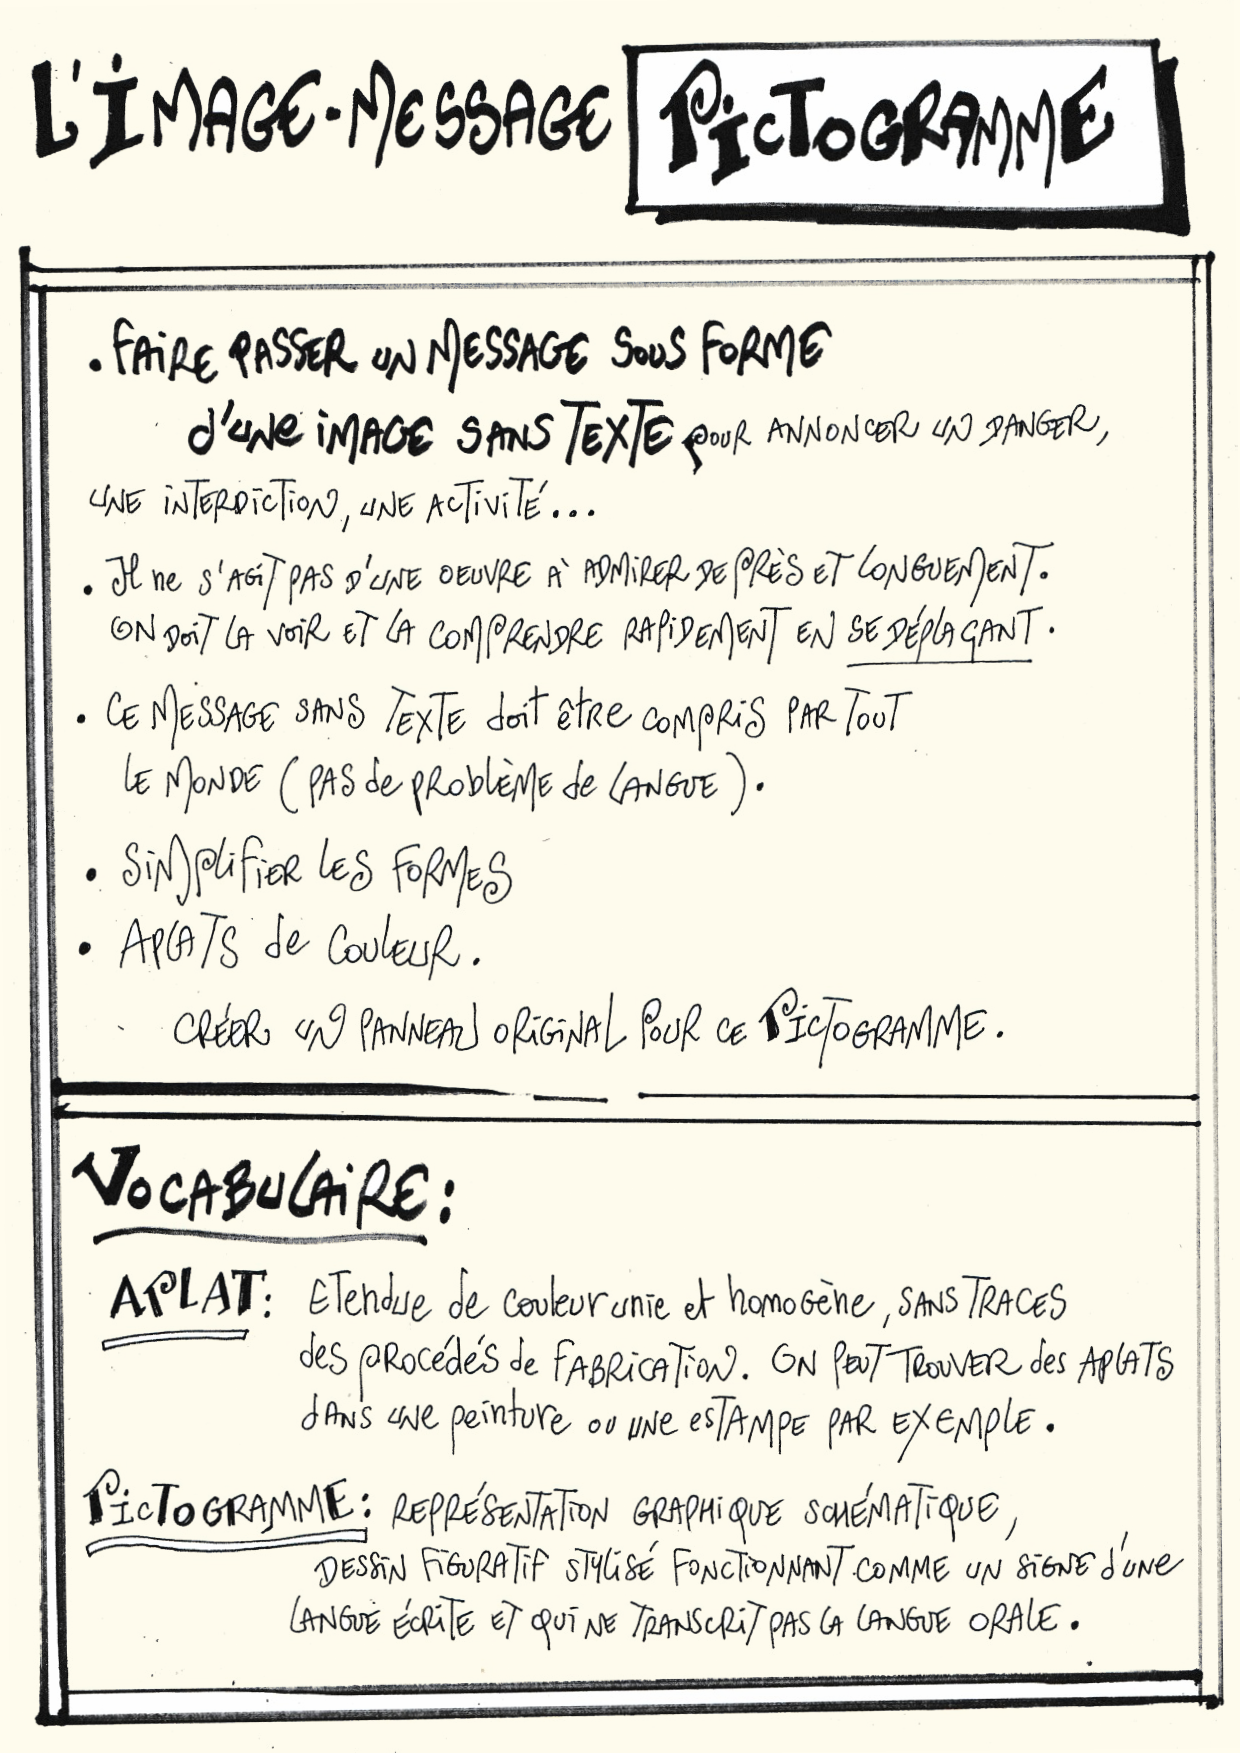 L'IMAGE-MESSAGE PICTOGRAMME
• FAIRE PASSER UN MESSAGE SOUS FORME
d'UNE IMAGE SANS TEXTE POUR ANNONCER UN DANGER,
UNE INTERDICTION, UNE ACTIVITÉ...
• Il ne s'AGIT PAS D'UNE OEUVRE À ADMIRER DE PRÈS ET LONGUEMENT.
ON DOIT LA VOIR ET LA COMPRENDRE RAPIDEMENT EN SE DÉPLAÇANT.
• CE MESSAGE SANS TEXTE doit être COMPRIS PAR TOUT
LE MONDE (PAS de PROBLÈME de LANGUE).
• SIMPLIFIER LES FORMES
• APLATS de COULEUR.
CRÉER UN PANNEAU ORIGINAL POUR CE PICTOGRAMME.
VOCABULAIRE:
APLAT: ETendue de couleur unie et homogène, SANS TRACES
des procédés de FABRICATION. ON PEUT TROUVER des APLATS
dANS une peinture ou UNE esTAMPE PAR EXEMPLE.
PICTOGRAMME: REPRÉSENTATION GRAPHIQUE SCHÉMATIQUE,
DESSIN FIGURATIF STYLISÉ FONCTIONNANT COMME UN SIGNE d'UNE
LANGUE ÉCRITE ET QUI NE TRANSCRIT PAS LA LANGUE ORALE.